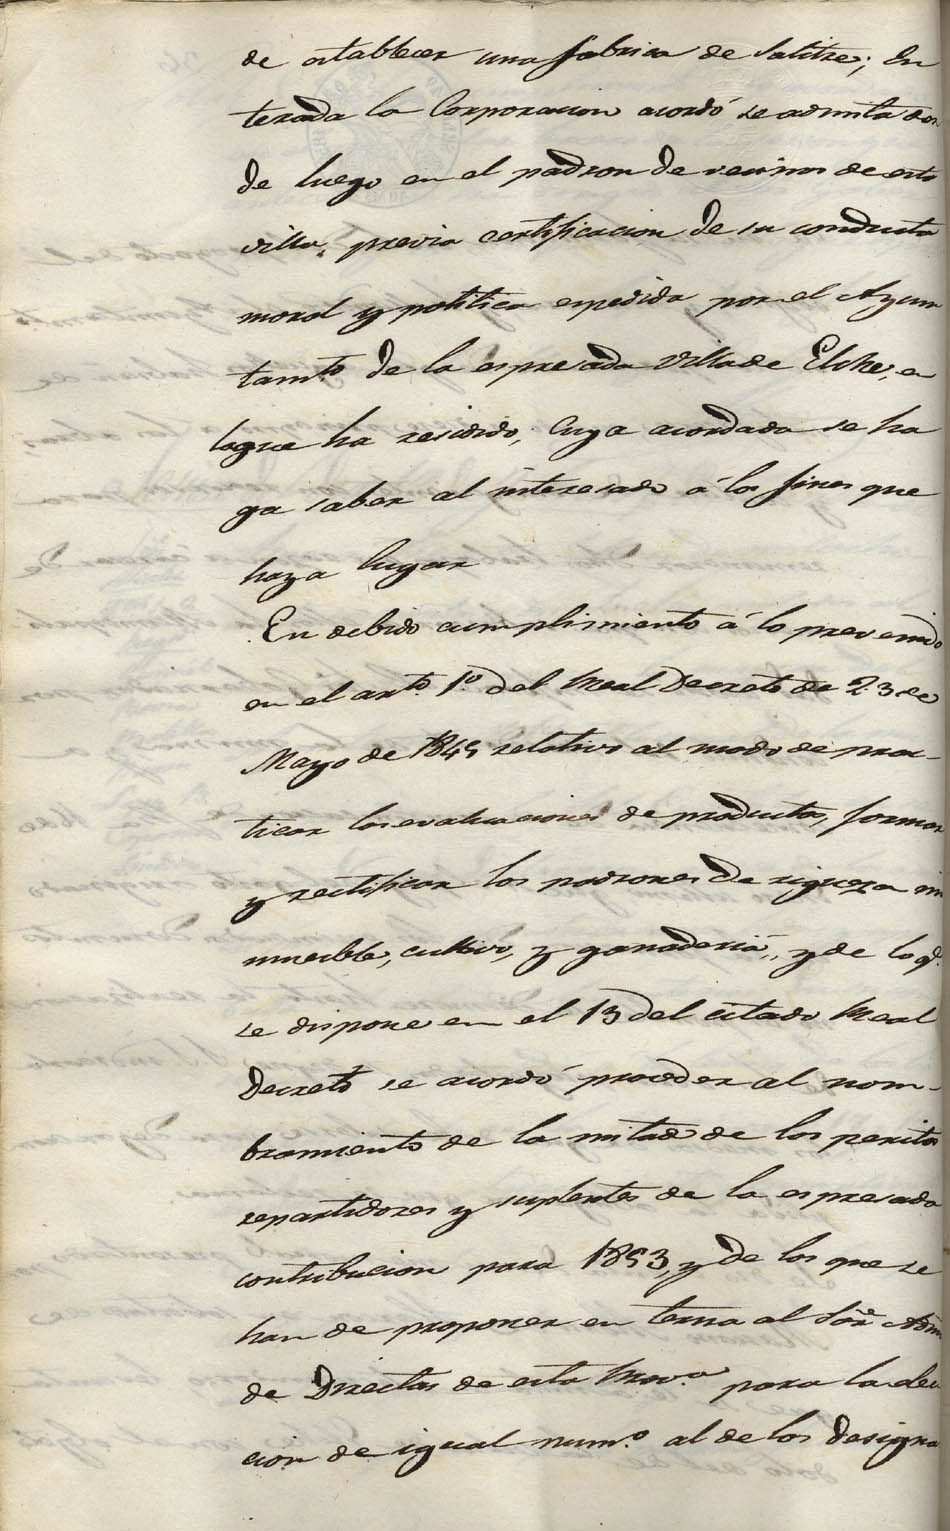 de establecer una fabrica de Salitre; En
terada la Corporacion acordó se admita des
de luego en el padron de vecinos de esta
villa, previa certificacion de su conducta
moral y politica espedida por el Ayun
tamto. de la espresada Villa de Elche, en
laque ha residido, Cuya acordada se ha
ga saber al interesado á los fines que
haya lugar
En debido cumplimiento á lo prevenido
en el arto. 1º. del Real Decreto de 23 de
Mayo de 1845 relativo al modo de prac-
ticar las evaluaciones de productos, formar
y rectificar los padrones de riqueza in
mueble, cultivo, y ganaderia, y de lo q.
se dispone en el 13 del citado Real
Decreto se acordó proceder al nom-
bramiento de la mitad de los peritos
repartidores y suplentes de la espresada
contribucion para 1853, y de los que se
han de proponer en terna al Sor. Admr.
de Directas de esta Prova. para la elec
cion de igual numo. al de los designa